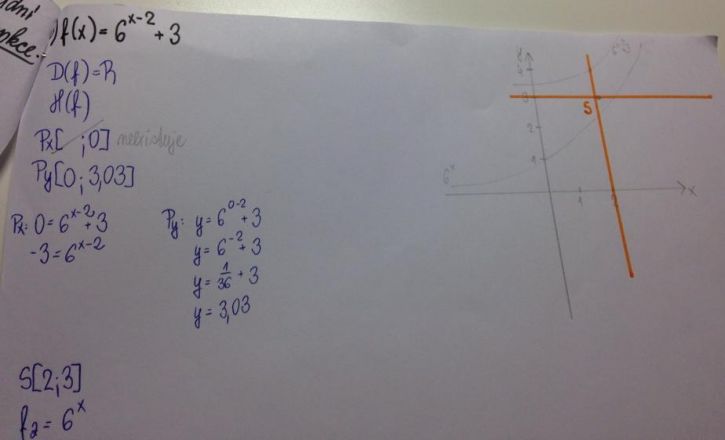 dní
nkce.
) f(x) = 6^(x-2) + 3
D(f) = R
H(f)
Px[ ; 0] neexistuje
Py[0 ; 3,03]
Px: 0 = 6^(x-2) + 3
-3 = 6^(x-2)
Py: y = 6^(0-2) + 3
y = 6^(-2) + 3
y = 1/36 + 3
y = 3,03
S[2;3]
f2 = 6^x
y
3
2
1
S
6^x
1
2
x